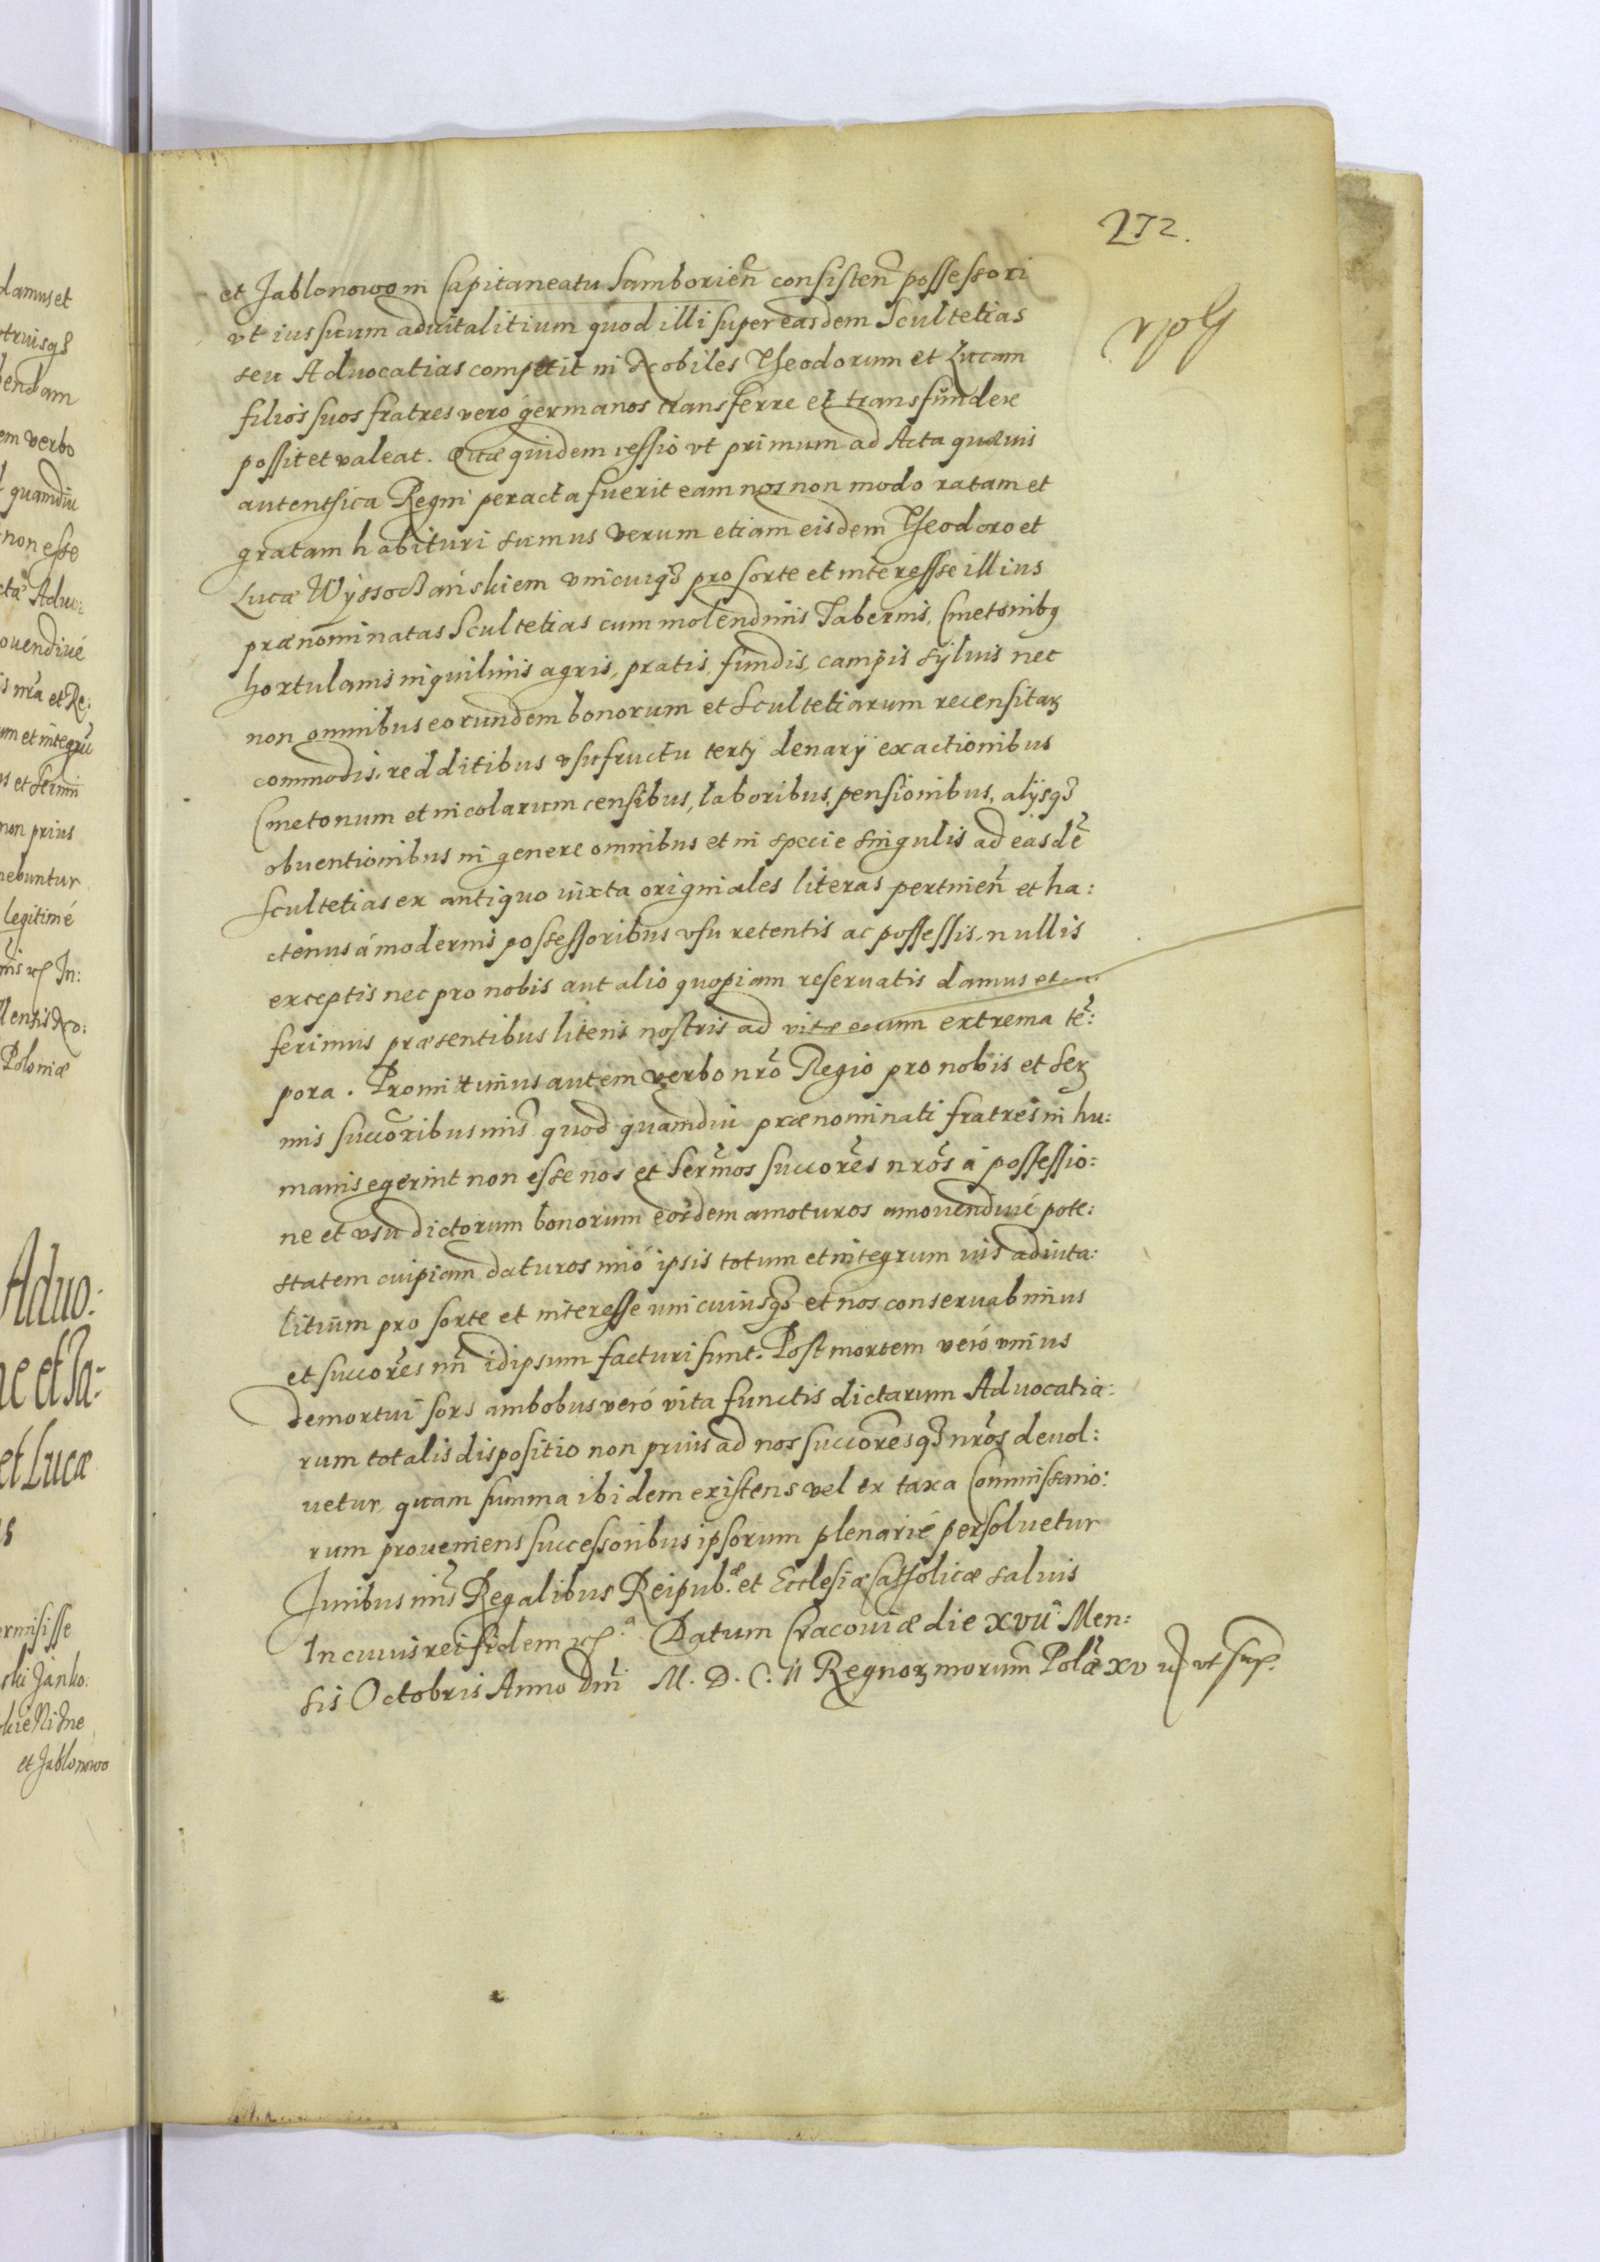 272.
et Jablonowo in Capitaneatu Samborien̄ consisten̄ possessori
vt ius suum aduitalitium quod illi super easdem Scultetias
seu Aduocatias competit in Nobiles Theodorum et Lucam
filios suos fratres veró germanos transferre et transfundere
possit et valeat. Quæ quidem cessio vt primum ad Acta quæuis
autenthica Regni peracta fuerit eam nos non modo ratam et
gratam habituri sumus verum etiam eisdem Theodoro et
Lucæ Wyssochańskiem vnicuiqʒ pro sorte et interesse illius
prænominatas Scultetias cum molendinis Tabernis, Cmetonibq
hortulanis inquilinis agris, pratis, fundis, campis syluis nec
non omnibus eorundem bonorum et Scultetiarum recensitaꝝ
commodis, redditibus vsufructu tertÿ denarÿ exactionibus
Cmetonum et incolarum censibus, laboribus, pensionibus, alÿsqʒ
obuentionibus in genere omnibus et in specie singulis ad easdē
Scultetias ex antiquo iuxta originales literas pertinen̄ et ha:
ctenus á modernis possessoribus vsu retentis ac possessis, nullis
exceptis nec pro nobis aut alio quopiam reseruatis damus et con
ferimus præsentibus literis nostris ad vitæ eorum extrema tē:
pora. Promittimus autem verbo nr̄o Regio pro nobis et Ser
mis succōribus nr̄is quod quamdiu prænominati fratres in hu:
manis egerint non esse nos et Serm̄os succōres nr̄os á possessio:
ne et vsu dictorum bonorum eosdem amoturos amouendiué pote:
statem cuipiam daturos imó ipsis totum et integrum ius aduita:
litium pro sorte et interesse vnicuiusqʒ et nos conseruabimus
et succōres nr̄i idipsum facturi sunt. Post mortem veró vnius
demortui sors ambobus veró vita functis dictarum Aduocatia:
rum totalis dispositio non prius ad nos succōresqʒ nr̄os deuol:
uetur, quam summa ibidem existens vel ex taxa Commissario:
rum proueniens successoribus ipsorum plenarié persoluetur
Juribus nr̄is Regalibus Reipub.æ et Ecclesiæ Catholicæ saluis
In cuius rei fidem etc.a Datum Cracouiæ die XVII Men:
sis Octobris Anno Dn̄i M. D. C. II Regnoꝝ nr̄orum Pol̄æ XV etc vt sup.